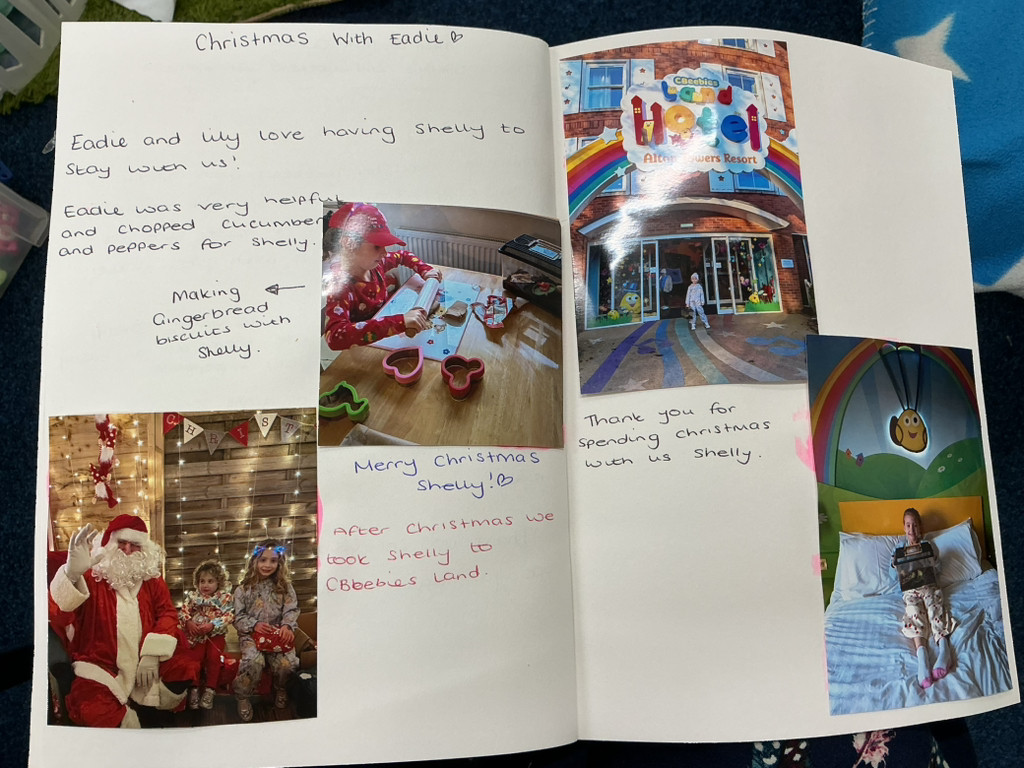 Christmas With Eadie♡
Eadie and Lily love having Shelly to
stay with us!
Eadie was very helpful
and chopped cucumber
and peppers for Shelly.
Making
Gingerbread
biscuits with
Shelly.
CHRIST
Merry Christmas
Shelly!♡
After Christmas we
took Shelly to
CBbeebies Land.
CBeebies
Land
Hotel
Alton Towers Resort
Thank you for
spending Christmas
with us Shelly.